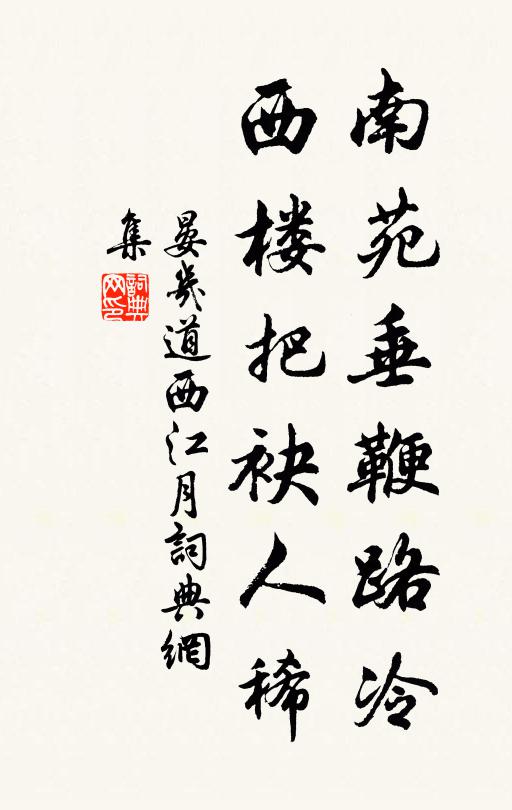 南苑垂鞭路冷
西楼把袂人稀
晏幾道西江月詞典網
集
詞典網印